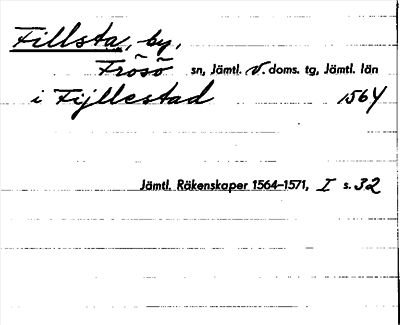 Fillsta, by,
Frösö sn, Jämtl. V. doms. tg, Jämtl. län
i Fijllestad 1564
Jämtl. Räkenskaper 1564–1571, I s. 32